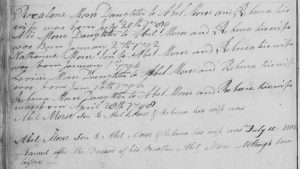 Roxalana Morse Daughter to Abel Morse and Rebeca his
wife was born July 20th 1790
Morse Daughter to Abel Morse and Rebeca his wife
was Born January 27th 1792
Morse Son to Abel Morse and Rebeca his wife
was born January 1794
Morse Daughter to Abel Morse and Rebeca his wife
was born Jany 18th 1796
Rebeca Morse Daughter to Abel Morse and Rebeca his wife
was born April 20th 1798
Abel Morse Son to Abel Morse & Rebeca his wife was
Abel Morse Son to Abel Morse & Rebeca his wife was July 15. 1803
Named after the Decease of his Brother Abel Morse born
before